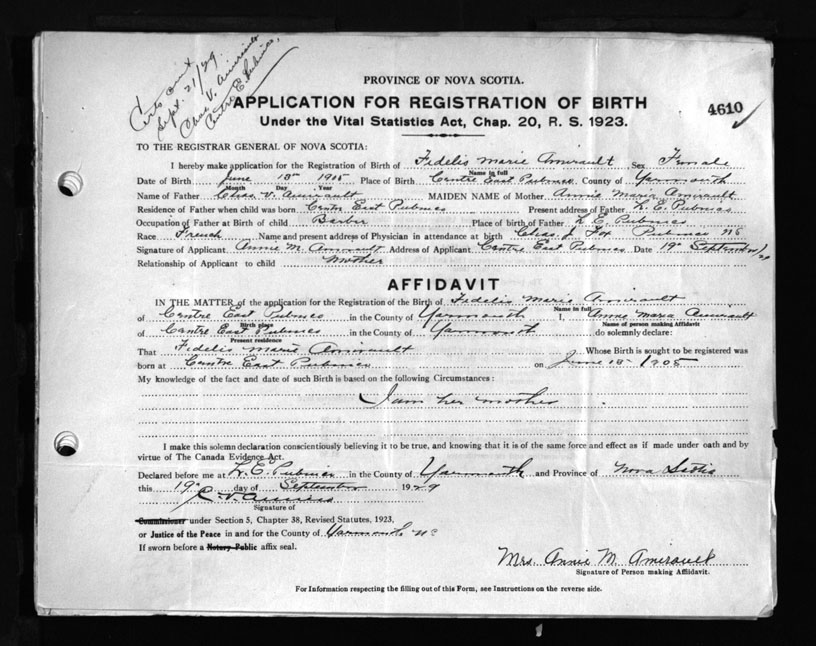 Certs sent
Sept. 21/29
Chas V. Amirault
Centre E. Pubnico,
PROVINCE OF NOVA SCOTIA.
APPLICATION FOR REGISTRATION OF BIRTH
4610
Under the Vital Statistics Act, Chap. 20, R. S. 1923.
TO THE REGISTRAR GENERAL OF NOVA SCOTIA:
I hereby make application for the Registration of Birth of Fidelis Marie Amirault Sex Female
Name in full
Date of Birth June 18th 1905 Place of Birth Centre East Pubnico County of Yarmouth
Month Day , Year
Name of Father Chas V. Amirault MAIDEN NAME of Mother Annie Marie Amirault
Residence of Father when child was born Centre East Pubnico Present address of Father E. Pubnico
Occupation of Father at Birth of child Place of birth of Father E. Pubnico
Race French Name and present address of Physician in attendance at birth Chas. J. Fox Pubnico NS
Signature of Applicant Annie M. Amirault Address of Applicant Centre East Pubnico Date 19th September/29
Relationship of Applicant to child Mother
AFFIDAVIT
IN THE MATTER of the application for the Registration of the Birth of Fidelis Marie Amirault
Name in full
of Centre East Pubnico in the County of Yarmouth I, Annie Maria Amirault
Birth place
Name of person making Affidavit
of Centre East Pubnico in the County of Yarmouth do solemnly declare:
Present residence
That Fidelis Marie Amirault Whose Birth is sought to be registered was
born at Centre East Pubnico on June 18th 1905
My knowledge of the fact and date of such Birth is based on the following Circumstances:
I am her mother
I make this solemn declaration conscientiously believing it to be true, and knowing that it is of the same force and effect as if made under oath and by
virtue of The Canada Evidence Act.
Declared before me at E. Pubnico in the County of Yarmouth and Province of Nova Scotia
this 19th day of September 1929
Signature of
Commissioner under Section 5, Chapter 38, Revised Statutes, 1923,
or Justice of the Peace in and for the County of Yarmouth
If sworn before a Notary Public affix seal.
Mrs. Annie M. Amirault
Signature of Person making Affidavit.
For Information respecting the filling out of this Form, see Instructions on the reverse side.